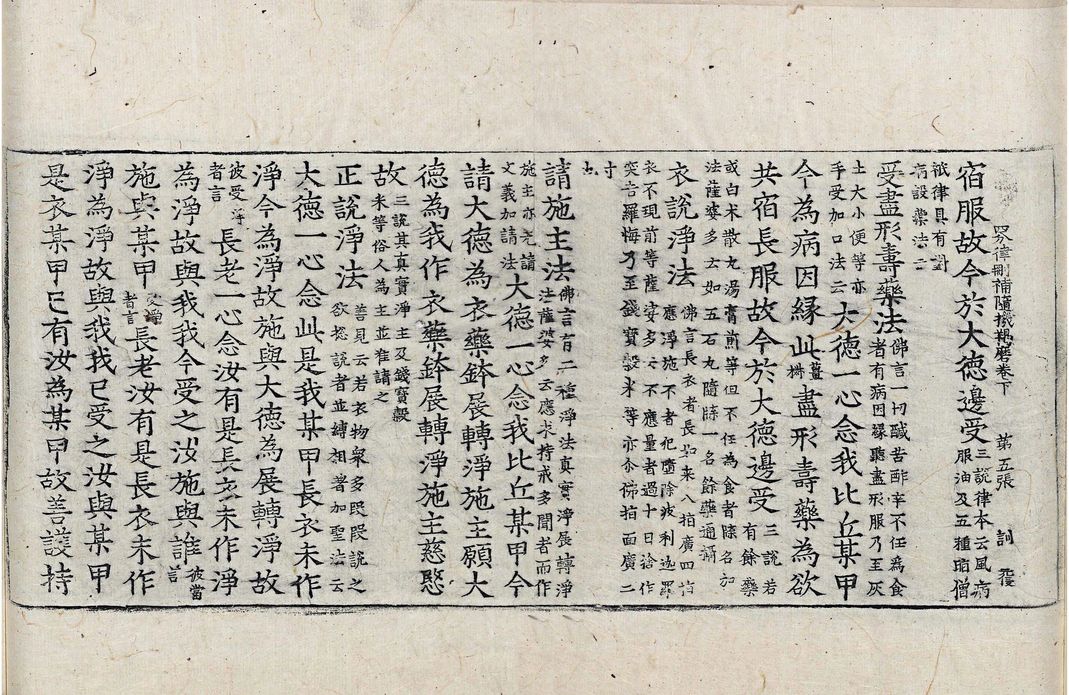 四分律刪補隨機羯磨卷下 第五張 訓
宿服故今於大德邊受三說律本云風病服油及五種脂僧
祇律具有對病設藥法二
受盡形壽藥法佛言一切鹹苦酢辛不任為食者有病因緣聽盡形服乃至灰
土大小便等亦手受加口法云大德一心念我比丘某甲
今為病因緣此薑椒盡形壽藥為欲
共宿長服故今於大德邊受三說若有餘藥
或白朮散丸湯膏煎等但不任為食者除名加法薩婆多云如五石丸隨除一名餘藥通誦
衣說淨法佛言長衣者長如來八指廣四指應淨施不者犯墮除疲利迦羅
衣不現前等薩婆多云不應量者過十日捨作突吉羅悔乃至錢寶穀米等亦爾佛指面廣二
寸也
請施主法佛言有二種淨法真實淨展轉淨施主亦先請法薩婆多云應求持戒多聞者而作
文義加請法大德一心念我比丘某甲今
請大德為衣藥鉢展轉淨施主願大
德為我作衣藥鉢展轉淨施主慈愍
故三說其真實淨主及錢寶穀米等俗人為主並准請之
正說淨法善見云若衣物眾多段段說之欲總說者並縛相著加聖法云
大德一心念此是我某甲長衣未作
淨今為淨故施與大德為展轉淨故
彼受淨者言長老一心念汝有是長衣未作淨
為淨故與我我今受之汝施與誰彼當言
施與某甲受淨者言長老汝有是長衣未作
淨為淨故與我我已受之汝與某甲
是衣某甲已有汝為某甲故善護持